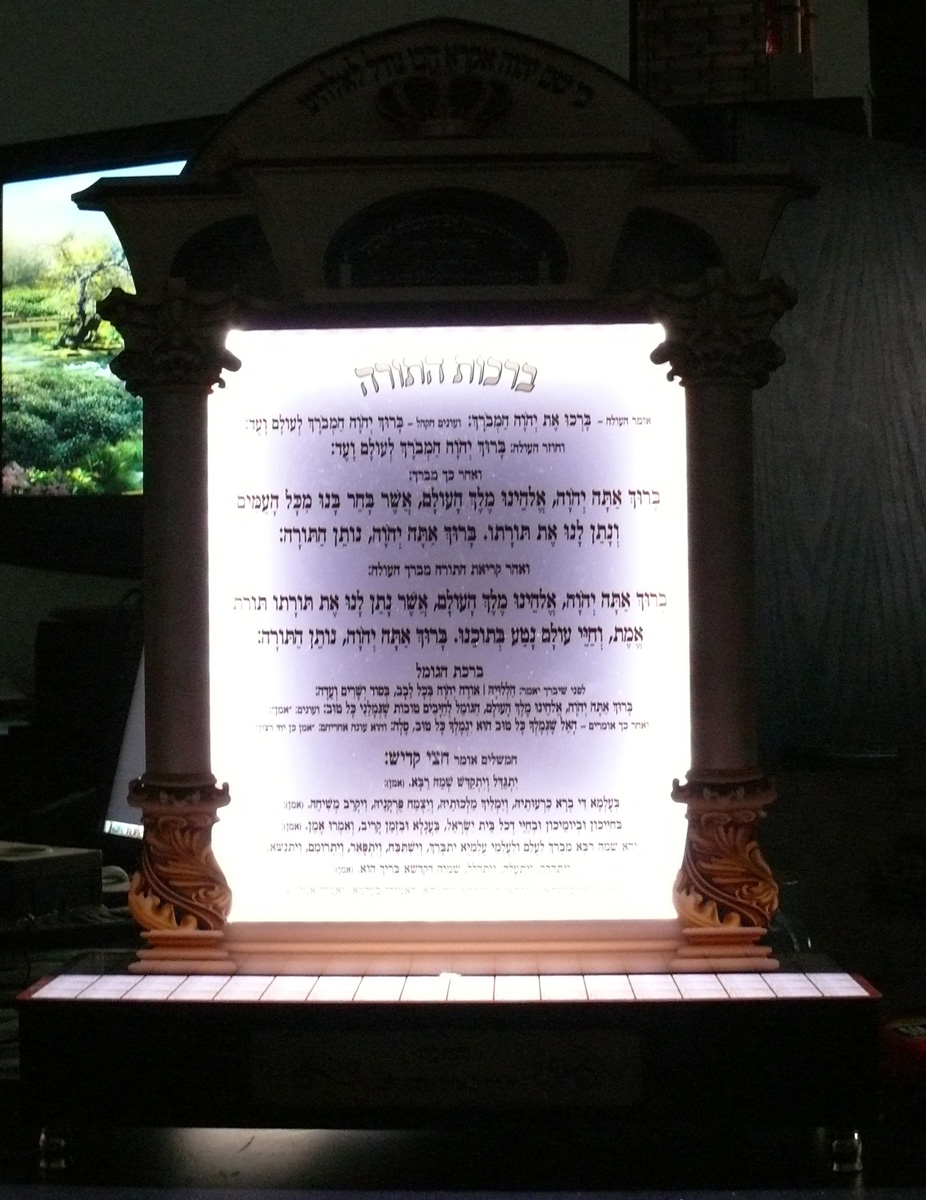 כי שם יהוה אקרא הבו גודל לאלהינו
ברכות התורה
אומר העולה – בָּרְכוּ אֶת יְהֹוָה הַמְבֹרָךְ: ועונים הקהל – בָּרוּךְ יְהֹוָה הַמְבֹרָךְ לְעוֹלָם וָעֶד:
וחוזר העולה: בָּרוּךְ יְהֹוָה הַמְבֹרָךְ לְעוֹלָם וָעֶד:
ואחר כך מברך:
בָּרוּךְ אַתָּה יְהֹוָה, אֱלֹהֵינוּ מֶלֶךְ הָעוֹלָם, אֲשֶׁר בָּחַר בָּנוּ מִכָּל הָעַמִּים
וְנָתַן לָנוּ אֶת תּוֹרָתוֹ. בָּרוּךְ אַתָּה יְהֹוָה, נוֹתֵן הַתּוֹרָה:
ואחר קריאת התורה מברך העולה:
בָּרוּךְ אַתָּה יְהֹוָה, אֱלֹהֵינוּ מֶלֶךְ הָעוֹלָם, אֲשֶׁר נָתַן לָנוּ אֶת תּוֹרָתוֹ תּוֹרַת
אֱמֶת, וְחַיֵּי עוֹלָם נָטַע בְּתוֹכֵנוּ. בָּרוּךְ אַתָּה יְהֹוָה, נוֹתֵן הַתּוֹרָה:
ברכת הגומל
לפני שיברך יאמר: הַלְלוּיָהּ | אוֹדֶה יְהֹוָה בְּכָל לֵבָב, בְּסוֹד יְשָׁרִים וְעֵדָה:
בָּרוּךְ אַתָּה יְהֹוָה, אֱלֹהֵינוּ מֶלֶךְ הָעוֹלָם, הַגּוֹמֵל לְחַיָּבִים טוֹבוֹת שֶׁגְּמָלַנִי כָּל טוּב: ועונים: "אמן":
ואחר כך אומרים – הָאֵל שֶׁגְּמָלְךָ כָּל טוּב הוּא יִגְמָלְךָ כָּל טוּב, סֶלָה: והוא עונה אחריהם: "אמן כן יהי רצון"
המשלים אומר חצי קדיש:
יִתְגַּדַּל וְיִתְקַדַּשׁ שְׁמֵהּ רַבָּא. (אמן):
בְּעָלְמָא דִּי בְרָא כִרְעוּתֵיהּ, וְיַמְלִיךְ מַלְכוּתֵיהּ, וְיַצְמַח פֻּרְקָנֵיהּ, וִיקָרֵב מְשִׁיחֵהּ. (אמן):
בְּחַיֵּיכוֹן וּבְיוֹמֵיכוֹן וּבְחַיֵּי דְכָל בֵּית יִשְׂרָאֵל, בַּעֲגָלָא וּבִזְמַן קָרִיב, וְאִמְרוּ אָמֵן. (אמן):
יהא שמה רבא מברך לעלם ולעלמי עלמיא יתברך, וישתבח, ויתפאר, ויתרומם, ויתנשא.
ויתהדר, ויתעלה, ויתהלל, שמיה דקדשא בריך הוא. (אמן):